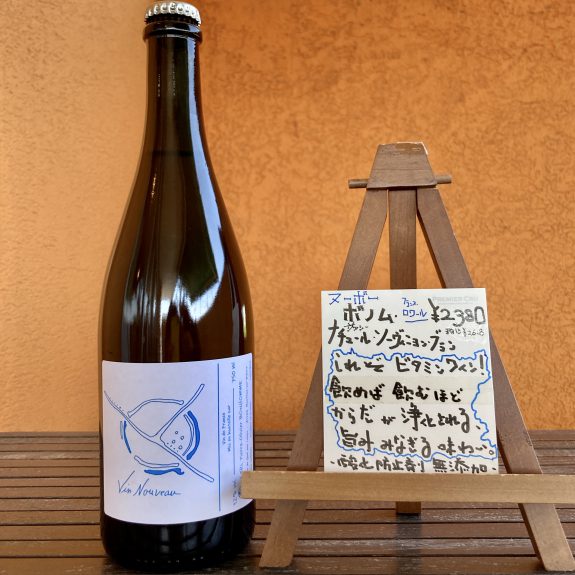 Vin Nouveau
Vin de France
Mis en bouteille par
750 ml
ヌーボー
ボノム
フランス
ロワール
¥2380
ナチュール・ソーヴィニヨンブラン
しれ〜とビタミンワイン!
飲めば飲むほど
からだが浄化される
旨みみなぎる味わい。
酸化防止剤無添加.